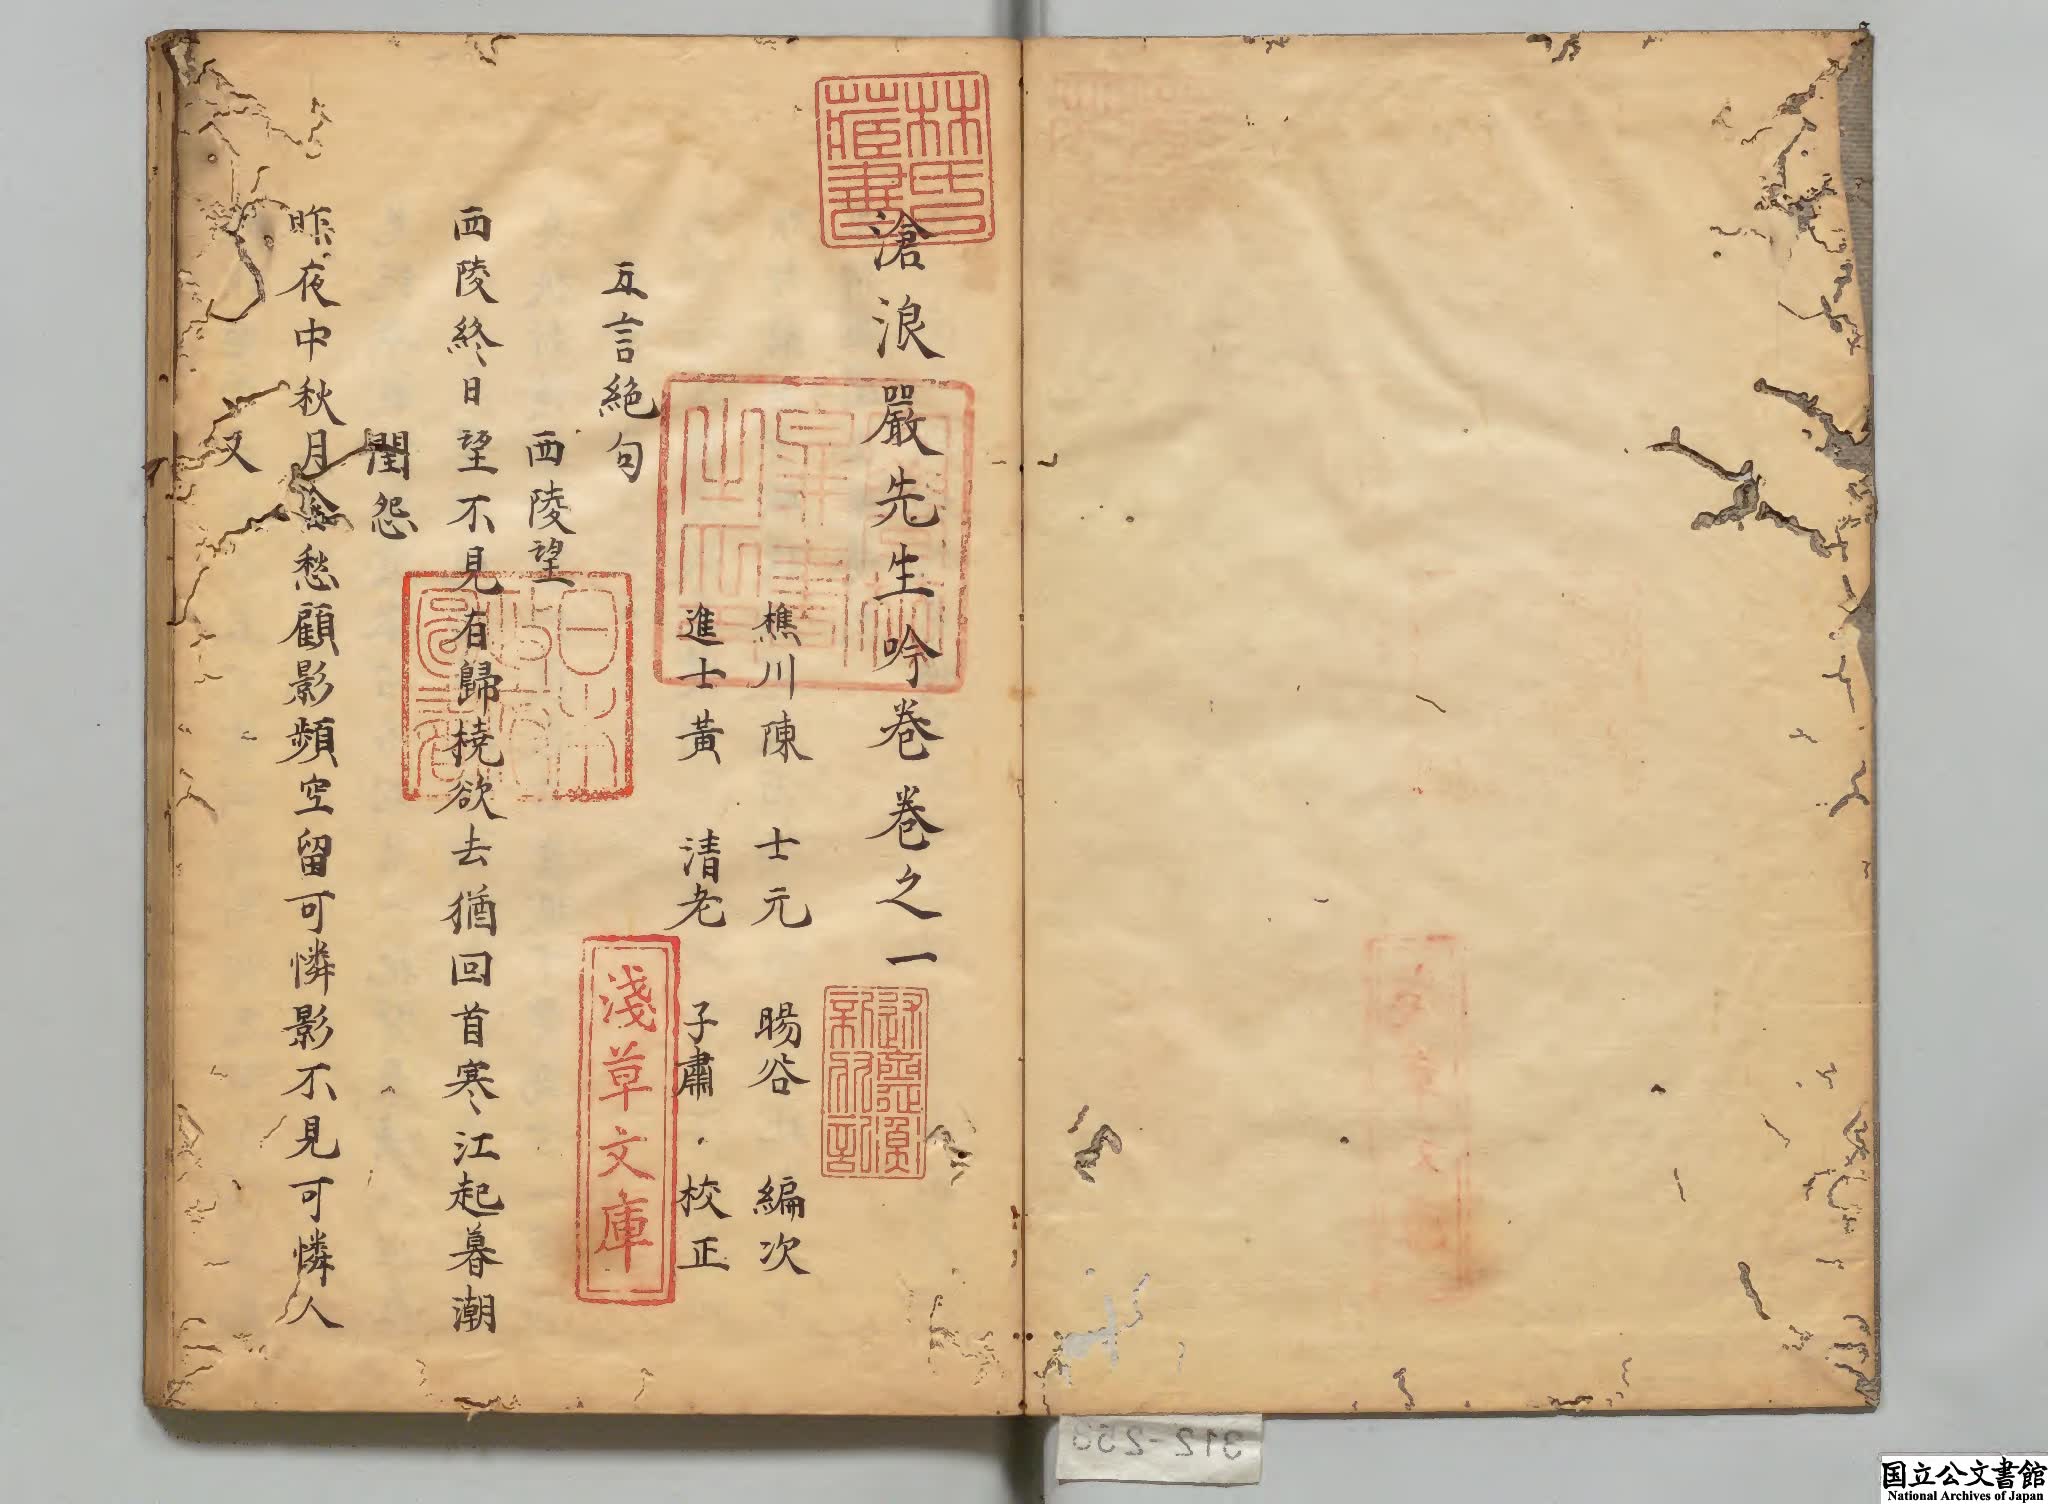 滄浪嚴先生吟卷卷之一
樵川陳士元暘谷編次
進士黃清老子肅校正
五言絕句
西陵望
西陵終日望不見有歸橈欲去猶回首寒江起暮潮
閨怨
昨夜中秋月含愁顧影頻空留可憐影不見可憐人
又
林氏藏書
日本政府圖書
淺草文庫
312-258
国立公文書館
National Archives of Japan